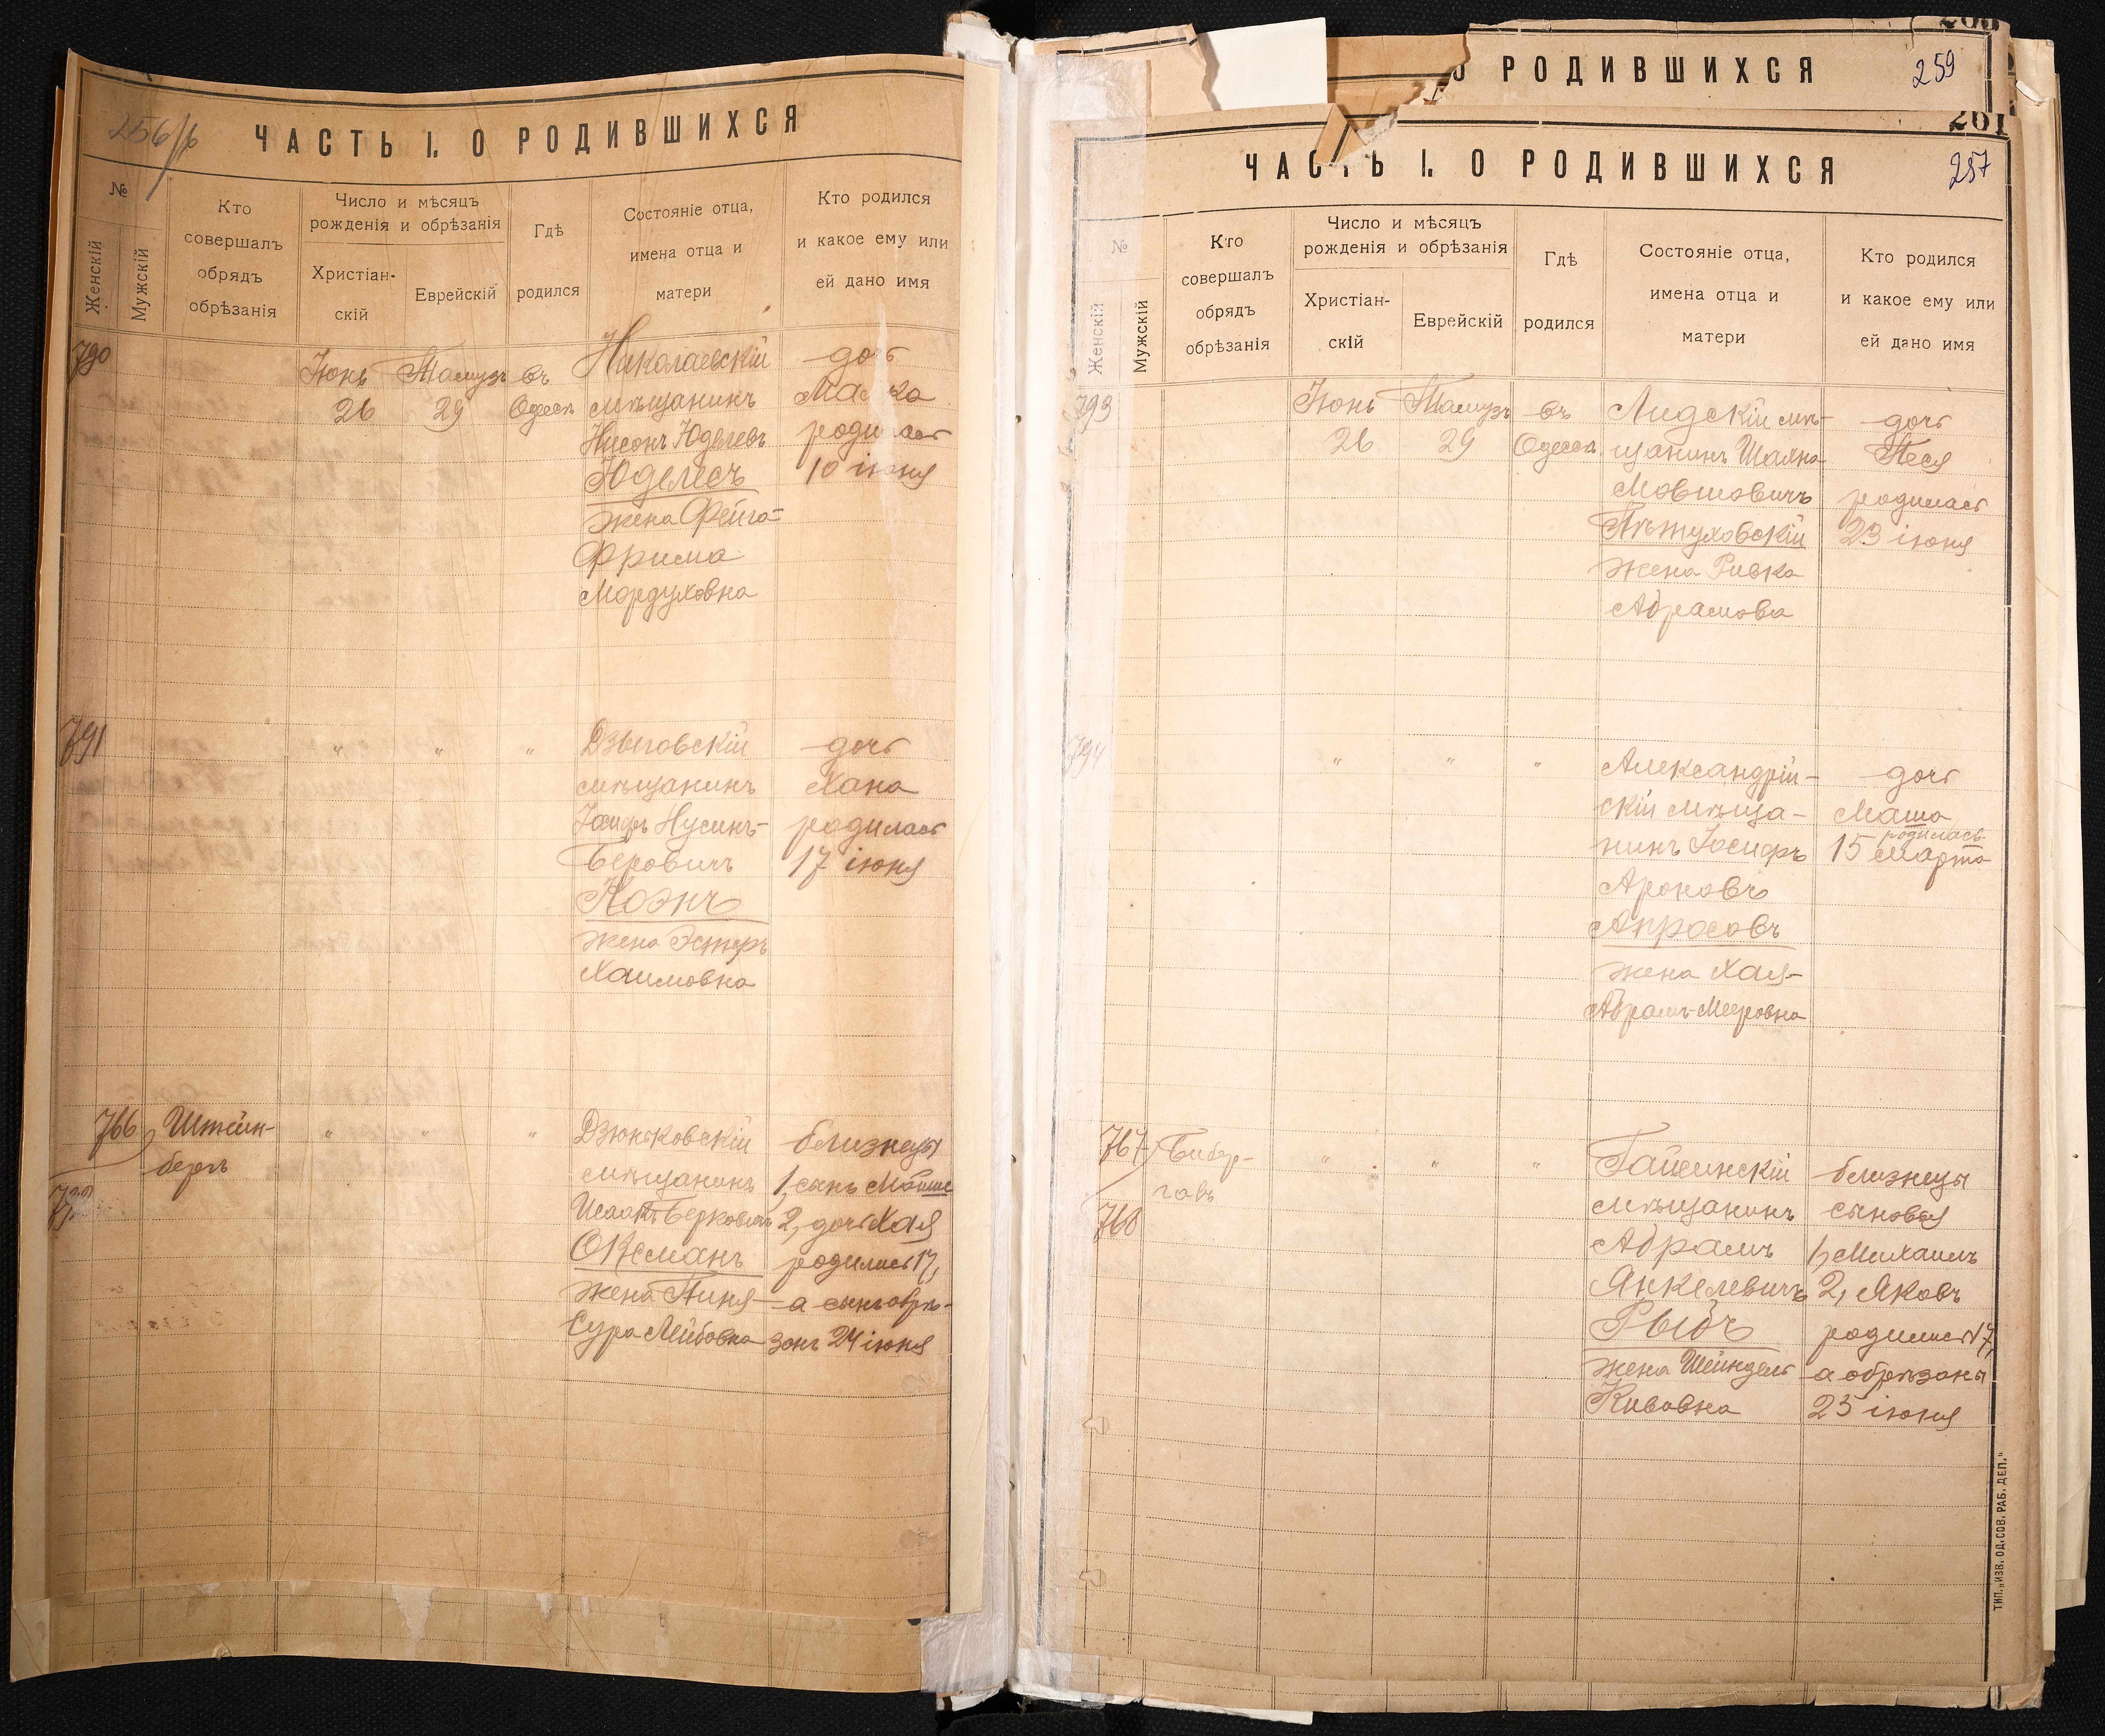 256/б
ЧАСТЬ I. О РОДИВШИХСЯ
№
Женскій
Мужскій
Кто
совершалъ
обрядъ
обрѣзанія
Число и мѣсяцъ
рожденія и обрѣзанія
Христіан-
скій
Еврейскій
Гдѣ
родился
Состояніе отца,
имена отца и
матери
Кто родился
и какое ему или
ей дано имя
790
Іюнь
26
Тамузъ
29
въ
Одессѣ
Николаевскій
мѣщанинъ
Нусонъ Юделевъ
Юделесъ
жена Фейга-
Фрима
Мордуховна
дочь
родилась
10 іюня
791
" " "
Дзыговскій
мѣщанинъ
Іосифъ Нусинъ-
Беровичъ
Коэнъ
жена Эстеръ
Хаимовна
дочь
Хана
родилась
17 іюня
766
Штейн-
бергъ
" " "
Дзюньковскій
мѣщанинъ
Исаакъ Берковичъ
Оксманъ
жена Пиня-
Сура Лейбовна
близнецы
1, сынъ Мойше
2, дочь Хая
родились 17,
а сынъ обрѣ-
занъ 24 іюня
О РОДИВШИХСЯ
259
261
ЧАСТЬ I. О РОДИВШИХСЯ
257
№
Женскій
Мужскій
Кто
совершалъ
обрядъ
обрѣзанія
Число и мѣсяцъ
рожденія и обрѣзанія
Христіан-
скій
Еврейскій
Гдѣ
родился
Состояніе отца,
имена отца и
матери
Кто родился
и какое ему или
ей дано имя
793
Іюнь
26
Тамузъ
29
въ
Одессѣ
Лидскій мѣ-
щанинъ Шахно
Мовшовичъ
Пѣтуховскій
жена Ривка
Абрамова
дочь
Песя
родилась
23 іюня
794
" " "
Александрій-
скій мѣща-
нинъ Іосифъ
Ароновъ
Апросовъ
жена Хая-
Абрамъ-Мееровна
дочь
Маша
родилась
15 марта
767
768
Бибер-
гавъ
" " "
Гайсинскій
мѣщанинъ
Абрамъ
Янкелевичъ
Рыбъ
жена Шейндель
Кивовна
близнецы
сыновья
1, Михаилъ
2, Яковъ
родились 17,
а обрѣзаны
25 іюня
ТИП. „ИЗВ. ОД. СОВ. РАБ. ДЕП."